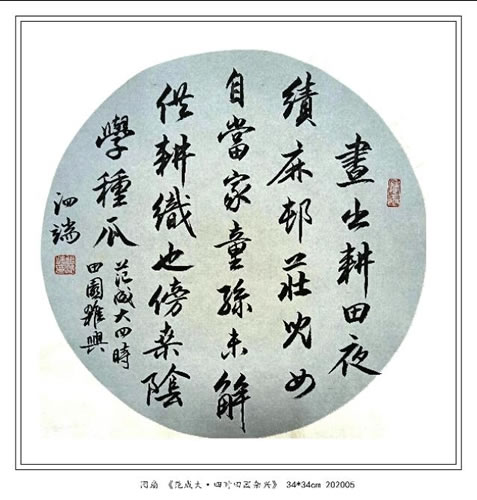 晝出耕田夜
績麻邨莊兒女
自當家童孫未解
供耕織也傍桑陰
學種瓜
范成大四時
田園雜興
泗端
团扇 《范成大·四时田园杂兴》 34*34cm 202005